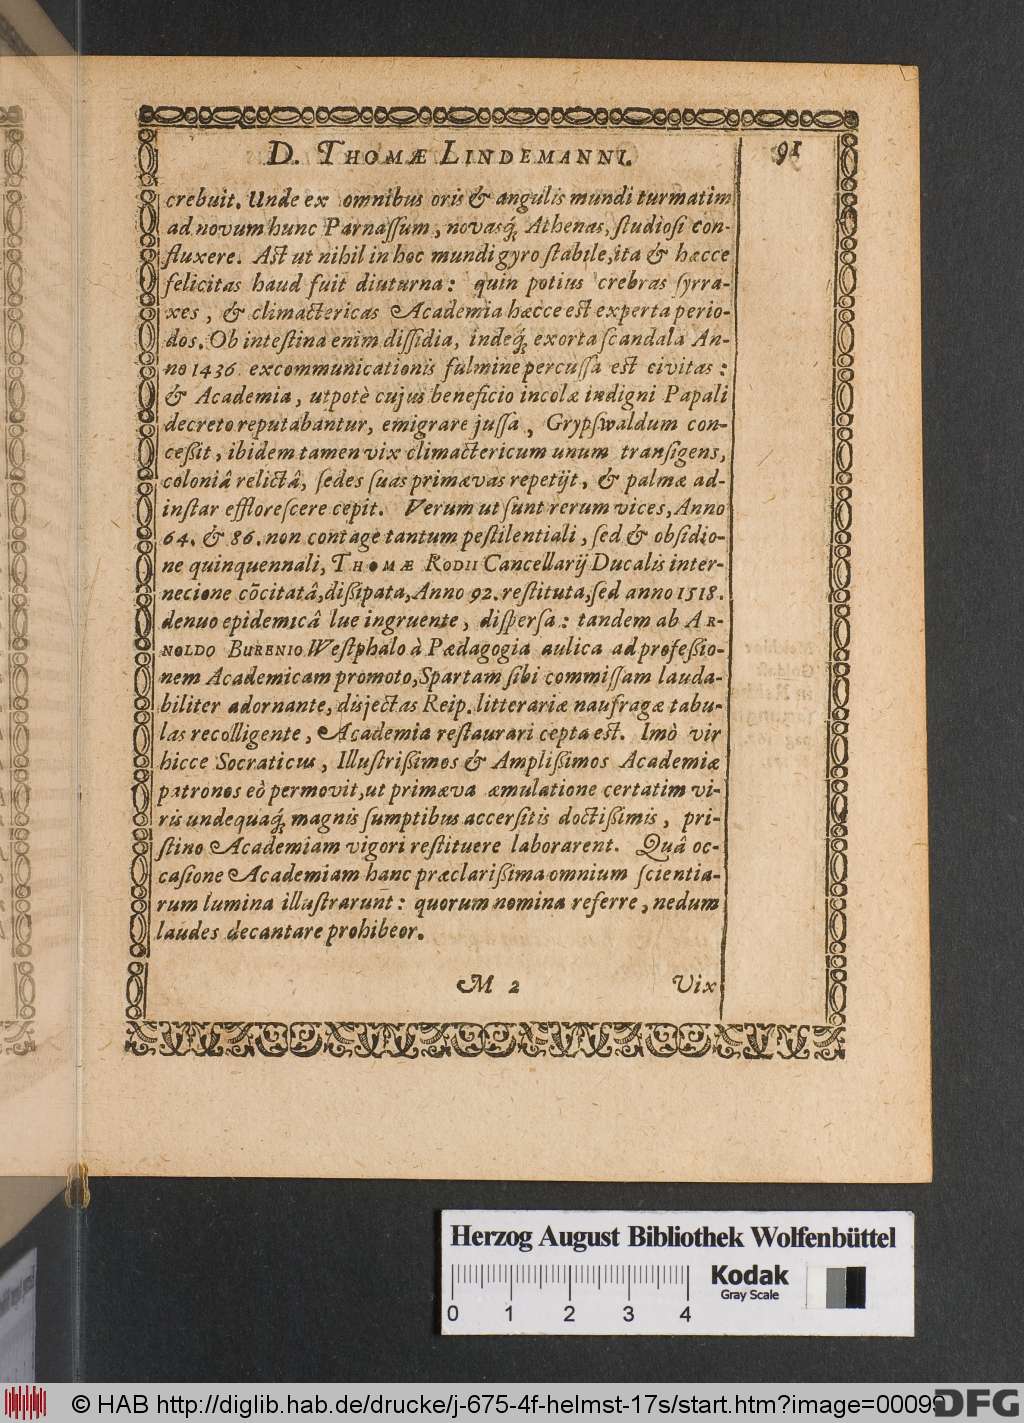 D. THOMÆ LINDEMANNI. 91
crebuit. Unde ex omnibus oris & angulis mundi turmatim
ad novum hunc Parnaſſum, novasq́; Athenas, ſtudioſi con-
fluxere. Aſt ut nihil in hoc mundi gyro ſtabile, ita & hæcce
felicitas haud fuit diuturna: quin potius crebras ſyrra-
xes, & climactericas Academia hæcce eſt experta perio-
dos. Ob inteſtina enim diſſidia, indeq́; exorta ſcandala An-
no 1436. excommunicationis fulmine percuſſa eſt civitas:
& Academia, utpotè cujus beneficio incolæ indigni Papali
decreto reputabantur, emigrare juſſa, Grypſwaldum con-
ceßit, ibidem tamen vix climactericum unum tranſigens,
coloniâ relictâ, ſedes ſuas primævas repetijt, & palmæ ad-
inſtar effloreſcere cepit. Verum ut ſunt rerum vices, Anno
64. & 86. non contage tantum peſtilentiali, ſed & obſidio-
ne quinquennali, THOMÆ RODII Cancellarij Ducalis inter-
necione cōcitatâ, dißipata, Anno 92. reſtituta, ſed anno 1518.
denuo epidemicâ lue ingruente, diſperſa: tandem ab AR-
NOLDO BURENIO Weſtphalo à Pædagogia aulica ad profeßio-
nem Academicam promoto, Spartam ſibi commiſſam lauda-
biliter adornante, disjectas Reip. litterariæ naufragæ tabu-
las recolligente, Academia reſtaurari cepta eſt. Imò vir
hicce Socraticus, Illuſtrißimos & Amplißimos Academiæ
patronos eò permovit, ut primæva æmulatione certatim vi-
ris undequaq́; magnis ſumptibus accerſitis doctißimis, pri-
ſtino Academiam vigori reſtituere laborarent. Quâ oc-
caſione Academiam hanc præclarißima omnium ſcientia-
rum lumina illuſtrarunt: quorum nomina referre, nedum
laudes decantare prohibeor.
M 2 Vix
Herzog August Bibliothek Wolfenbüttel
0 1 2 3 4
Kodak
Gray Scale
© HAB http://diglib.hab.de/drucke/j-675-4f-helmst-17s/start.htm?image=00099
DFG